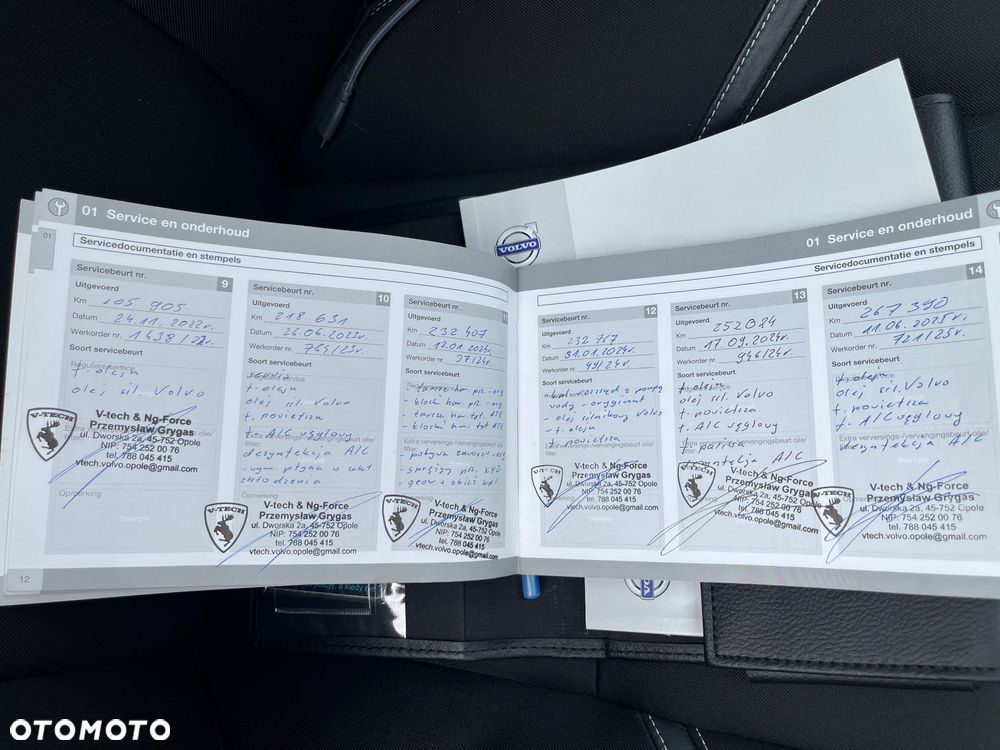 01 Service en onderhoud
01
Servicedocumentatie en stempels
Servicebeurt nr. 9
Uitgevoerd
Km 205 905
Datum 24.11.2022r.
Werkorder nr. 1438/22r.
Soort servicebeurt
Reguliere service
f. oleju
olej sil. Volvo
V-TECH
V-tech & Ng-Force
Przemysław Grygas
ul. Dworska 2a, 45-752 Opole
NIP: 754 252 00 76
tel. 788 045 415
vtech.volvo.opole@gmail.com
Opmerking
Servicebeurt nr. 10
Uitgevoerd
Km 218 631
Datum 26.06.2023r.
Werkorder nr. 764/23r.
Soort servicebeurt
f. oleju
olej sil Volvo
f. powietrza
f. A/C węglowy
dezynfekcja A/C
- wym. płynu w ukł
chłodzenia
Opmerking
V-TECH
V-tech & Ng-Force
Przemysław Grygas
ul. Dworska 2a, 45-752 Opole
NIP: 754 252 00 76
tel. 788 045 415
vtech.volvo.opole@gmail.com
Servicebeurt nr. 11
Uitgevoerd
Km 232 407
Datum 12.01.2024r.
Werkorder nr. 37/24r.
Soort servicebeurt
- tarcze ham pR - org
- klocki ham pR - org
- tarcze ham tył. ATE
- klocki ham. tył ATE
- sprężyny pR. KYB
Opmerking
V-TECH
V-tech & Ng-Force
Przemysław Grygas
ul. Dworska 2a, 45-752 Opole
NIP: 754 252 00 76
tel. 788 045 415
vtech.volvo.opole@gmail.com
12
01 Service en onderhoud
Servicedocumentatie en stempels
Servicebeurt nr. 12
Uitgevoerd
Km 232 767
Datum 31.01.2024r.
Werkorder nr. 49/24r.
Soort servicebeurt
- kpl. rozrząd z pompą
wody - oryginał
- olej silnikowy Volvo
- f. oleju
f. powietrza
V-TECH
V-tech & Ng-Force
Przemysław Grygas
ul. Dworska 2a, 45-752 Opole
NIP: 754 252 00 76
tel. 788 045 415
vtech.volvo.opole@gmail.com
Servicebeurt nr. 13
Uitgevoerd
Km 252824
Datum 17.09.2024r.
Werkorder nr. 946/24r.
Soort servicebeurt
f. oleju
olej sil. Volvo
f. powietrza
f. A/C węglowy
f. paliwa
dezynfekcja A/C
V-TECH
V-tech & Ng-Force
Przemysław Grygas
ul. Dworska 2a, 45-752 Opole
NIP: 754 252 00 76
tel. 788 045 415
vtech.volvo.opole@gmail.com
Servicebeurt nr. 14
Uitgevoerd
Km 267 390
Datum 11.06.2025r.
Werkorder nr. 721/25r.
Soort servicebeurt
f. oleju
olej sil. Volvo
f. powietrza
f. A/C węglowy
dezynfekcja A/C
V-TECH
V-tech & Ng-Force
Przemysław Grygas
ul. Dworska 2a, 45-752 Opole
NIP: 754 252 00 76
tel. 788 045 415
vtech.volvo.opole@gmail.com
VOLVO
OTOMOTO